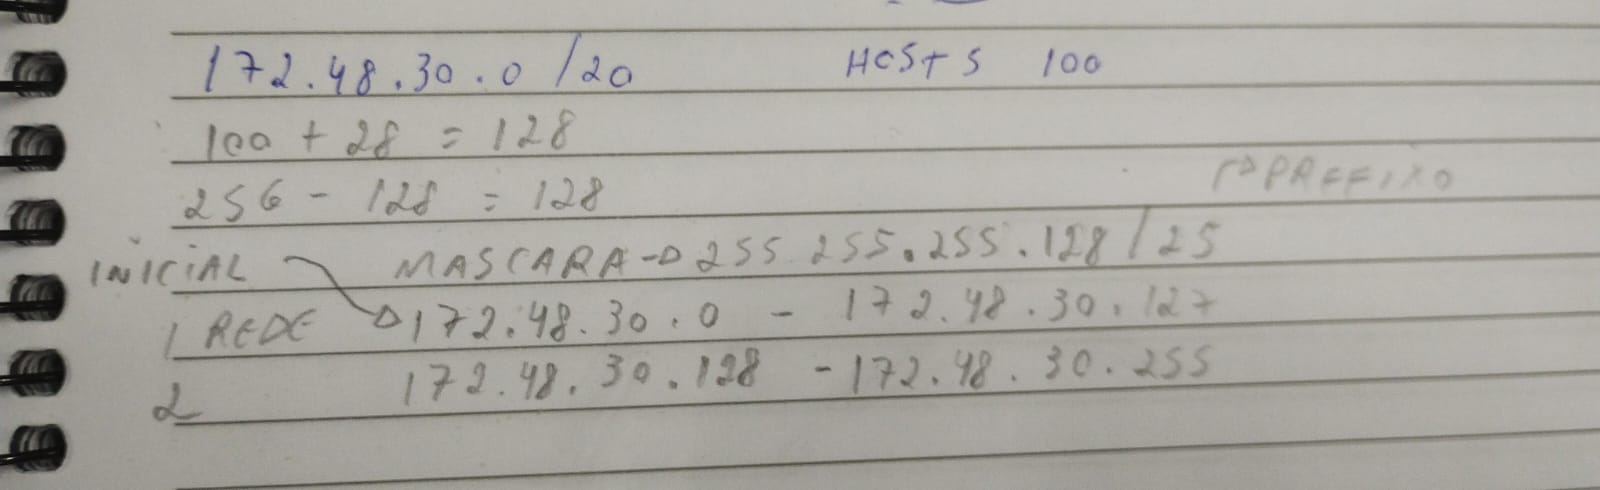 172.48.30.0 /20 HOSTS 100
100 + 28 = 128
256 - 128 = 128
PREFIXO
INICIAL MASCARA 255 255.255.128 / 25
1 REDE 172.48.30.0 - 172.48.30.127
2 172.48.30.128 - 172.48.30.255